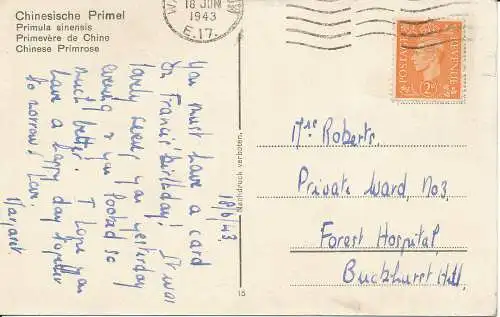 Chinesische Primel
Primula sinensis
Primevère de Chine
Chinese Primrose
18 JUN
1943
E.17.
POSTAGE
REVENUE
2D
18/6/43.
You must have a card
On Francis' Birthday! It was
lovely seeing you yesterday
evening & you looked so
much better. I hope you
have a happy day together
to-morrow. Love.
Margaret.
Nachdruck verboten.
15
Mrs Roberts.
Private Ward. No3.
Forest Hospital,
Buckhurst Hill.